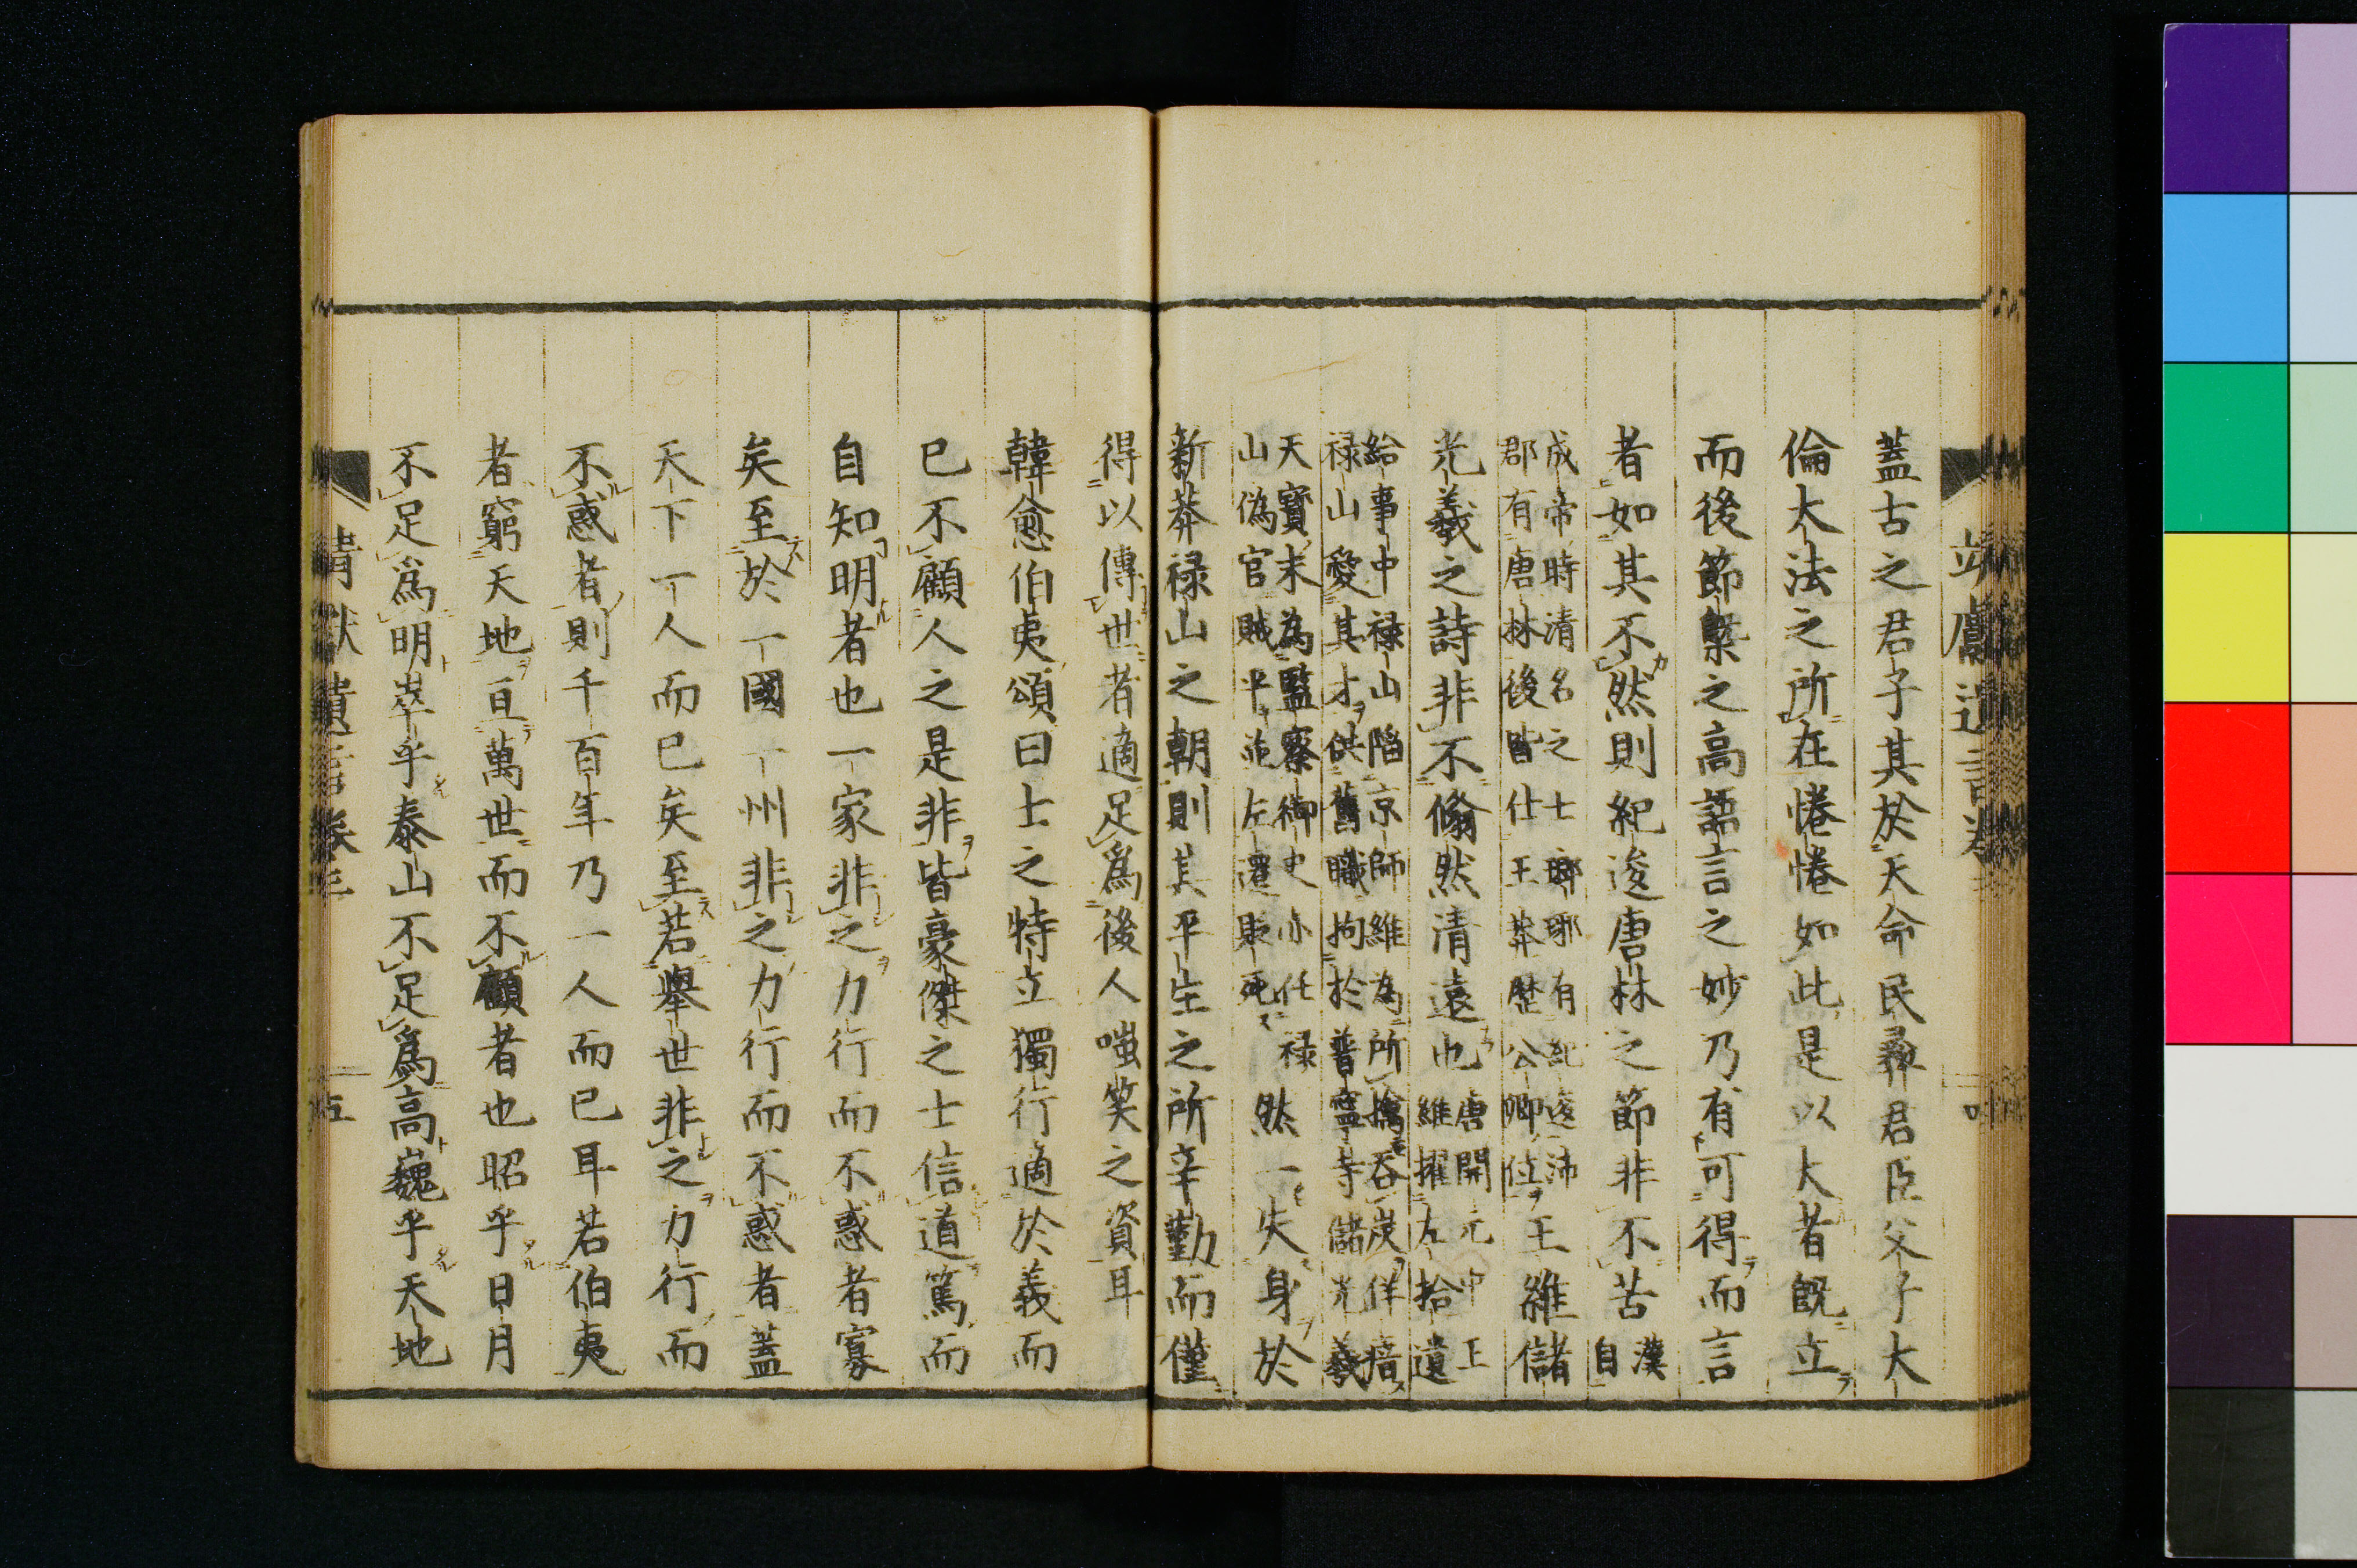 蓋古之君子其於天命民彝君臣父子大
倫大法之所在惓惓如此是以大者既立
而後節槩之高語言之妙乃有可得而言
者如其不然則紀逡唐林之節非不苦漢自
成帝時清名之士琅琊有紀逡沛
郡有唐林後皆仕王莽歷公卿位王維儲
光羲之詩非不翛然清遠也唐開元中王
維擢左拾遺
給事中禄山陷京師維為所擒吞炭佯瘖
禄山愛其才供舊職拘於普寧寺儲光羲
天寶末為監察御史亦任禄
山偽官賊平並左遷貶死然一失身於
新莽禄山之朝則其平生之所辛勤而僅
得以傳世者適足爲後人嗤笑之資耳
韓愈伯夷頌曰士之特立獨行適於義而
已不顧人之是非皆豪傑之士信道篤而
自知明者也一家非之力行而不惑者寡
矣至於一國一州非之力行而不惑者蓋
天下一人而已矣至若舉世非之力行而
不惑者則千百年乃一人而已耳若伯夷
者窮天地亘萬世而不顧者也昭乎日月
不足爲明崒乎泰山不足爲高巍乎天地
靖獻遺言卷三
五